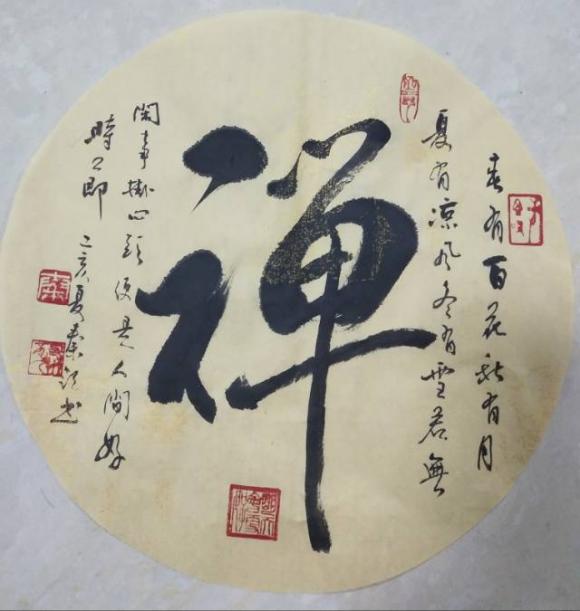 春有百花秋有月
夏有凉风冬有雪若無
禅
闲事掛心頭便是人间好
時之即
己亥夏秦
书